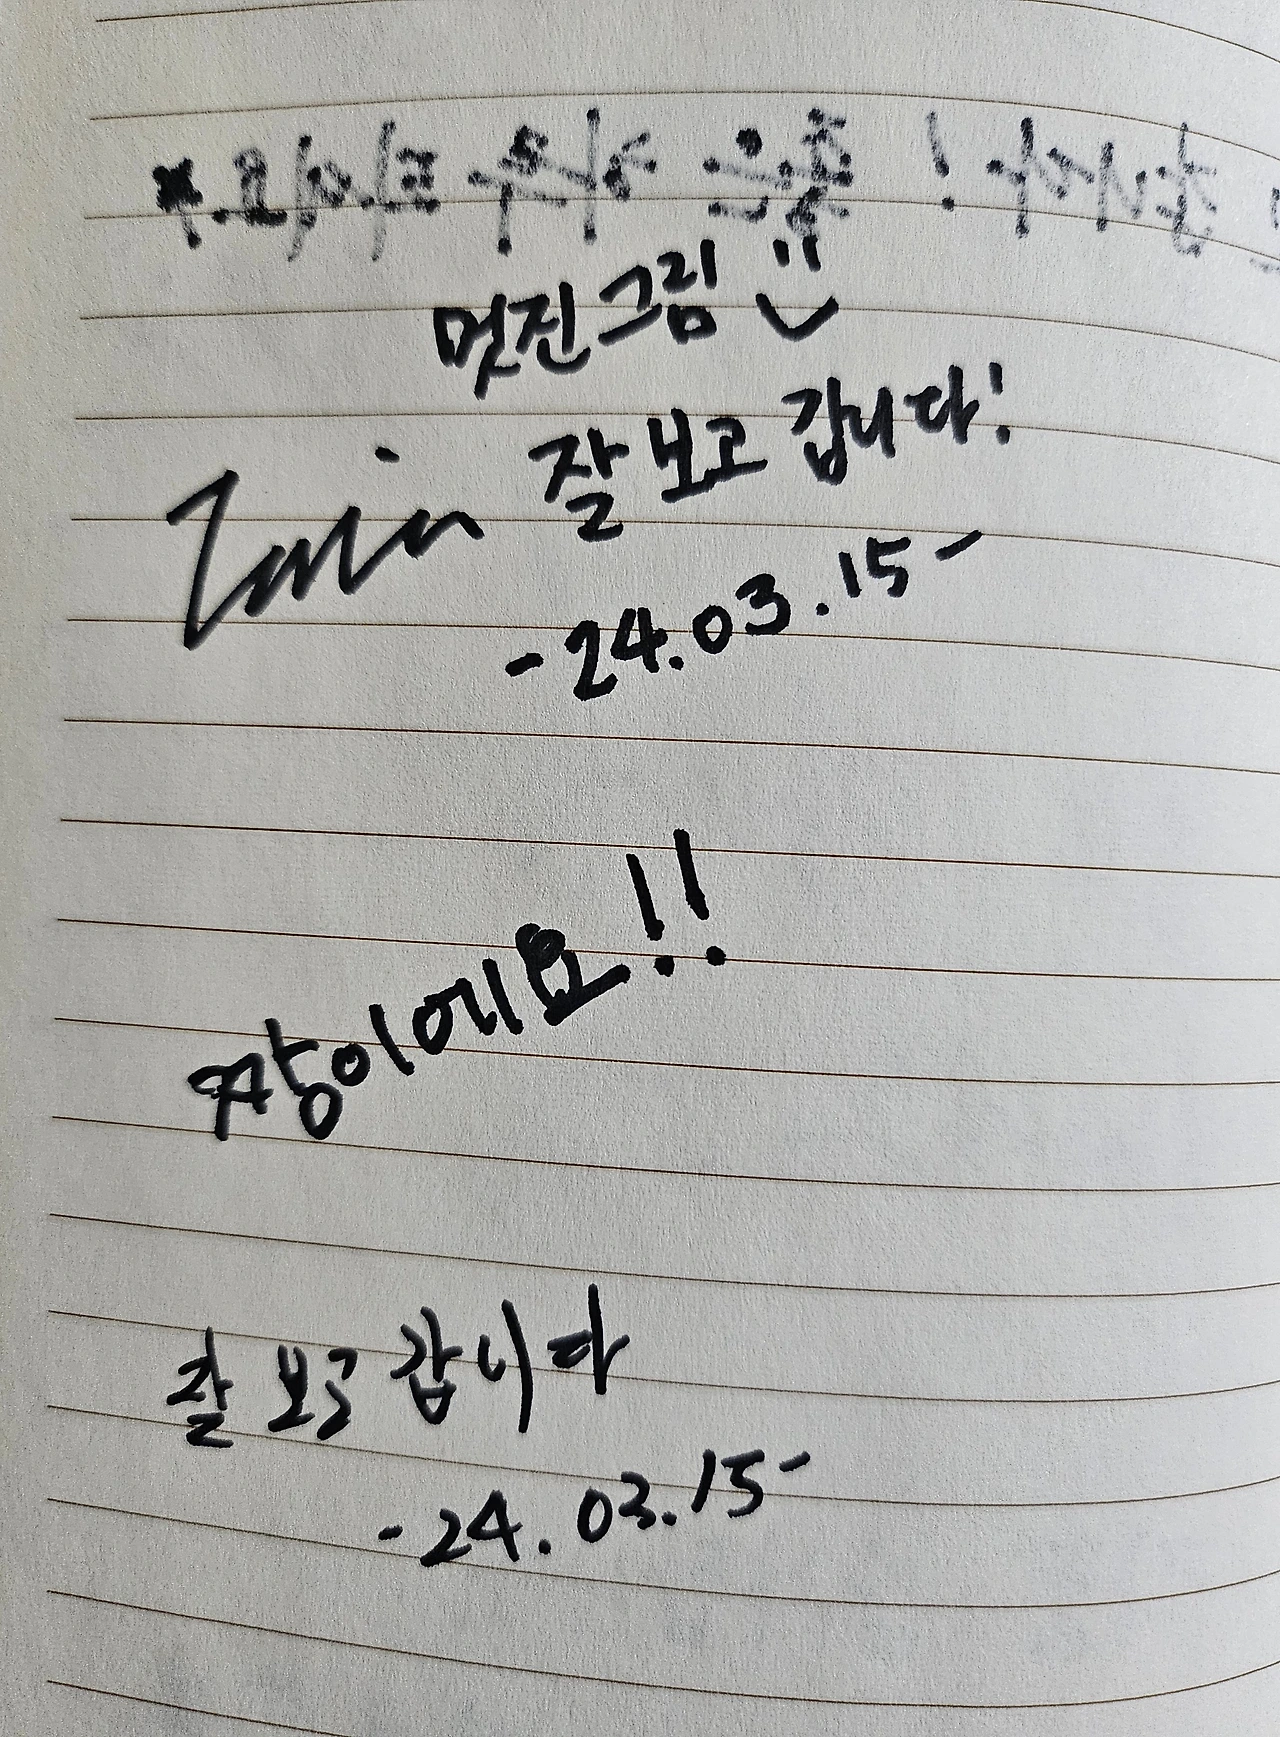 멋진 그림
잘 보고 갑니다!
-24.03.15-
짱이에요!!
잘 보고 갑니다
-24.03.15-